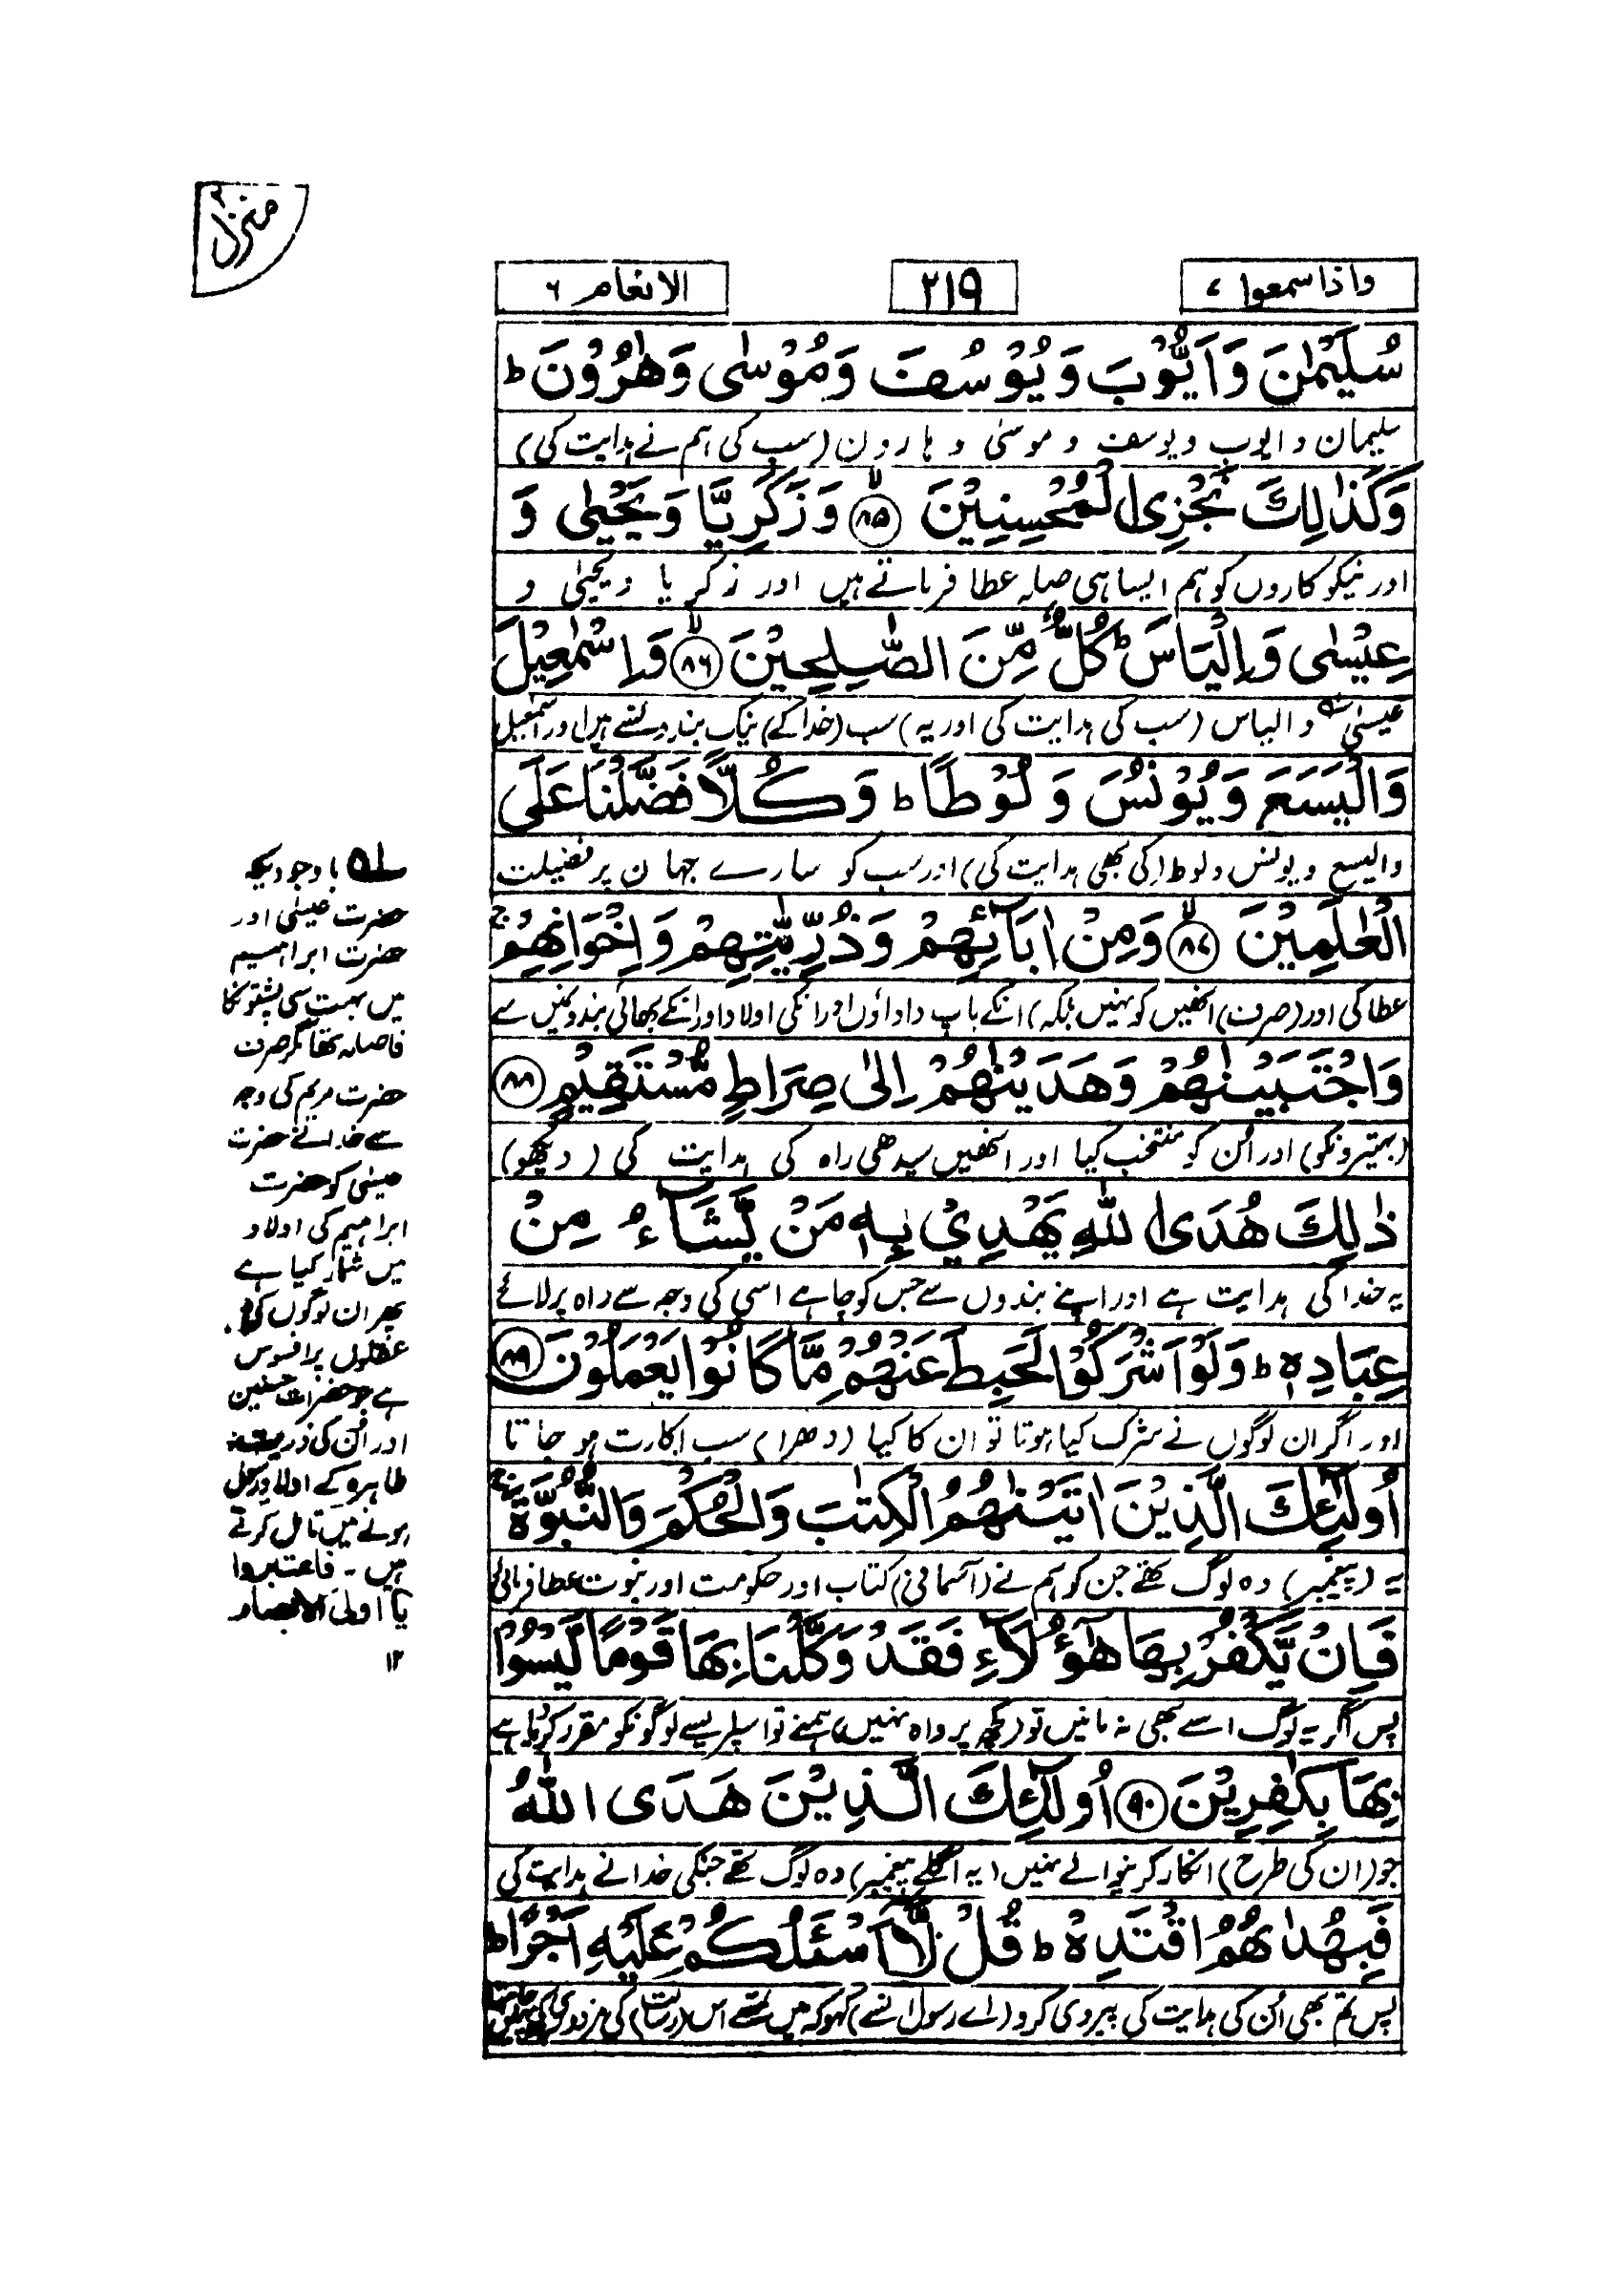 منزل ۲
واذا سمعوا ۷
۲۱۹
الانعام ۶
سُلَيْمٰنَ وَاَيُّوْبَ وَيُوْسُفَ وَمُوْسٰى وَهٰرُوْنَ ط
سلیمان و ایوب و یوسف و موسیٰ و ہارون (سب کی ہم نے ہدایت کی)
وَكَذٰلِكَ نَجْزِى الْمُحْسِنِيْنَ ﴿۸۵﴾ۙ وَزَكَرِيَّا وَيَحْيٰى وَ
اور نیکوکاروں کو ہم ایسا ہی صلہ عطا فرماتے ہیں اور زکریا و یحییٰ و
عِيْسٰى وَاِلْيَاسَ ط كُلٌّ مِّنَ الصّٰلِحِيْنَ ﴿۸۶﴾ۙ وَاِسْمٰعِيْلَ
عیسیٰ و الیاس (سب کی ہدایت کی اور یہ) سب (خدا کے) نیک بندوں سے ہیں اور اسمٰعیل
وَالْيَسَعَ وَيُوْنُسَ وَلُوْطًا ط وَكُلًّا فَضَّلْنَا عَلَى
و الیسع و یونس و لوط (کی بھی ہدایت کی) اور سب کو سارے جہان پر فضیلت
الْعٰلَمِيْنَ ﴿۸۷﴾ۙ وَمِنْ اٰبَآئِهِمْ وَذُرِّيّٰتِهِمْ وَاِخْوَانِهِمْ ج
عطا کی اور (صرف) انھیں کو نہیں بلکہ) انکے باپ داداؤں اور انکی اولاد اور انکے بھائی بندوں میں سے
وَاجْتَبَيْنٰهُمْ وَهَدَيْنٰهُمْ اِلٰى صِرَاطٍ مُّسْتَقِيْمٍ ﴿۸۸﴾
(بہتیرونکو) اور اُن کو منتخب کیا اور انھیں سیدھی راہ کی ہدایت کی (دیکھو)
ذٰلِكَ هُدَى اللّٰهِ يَهْدِيْ بِهٖ مَنْ يَّشَآءُ مِنْ
یہ خدا کی ہدایت ہے اور اپنے بندوں سے جس کو چاہے اسی کی وجہ سے راہ پر لائے
عِبَادِهٖ ط وَلَوْ اَشْرَكُوْا لَحَبِطَ عَنْهُمْ مَّا كَانُوْا يَعْمَلُوْنَ ﴿۸۹﴾
اور اگر ان لوگوں نے شرک کیا ہوتا تو ان کا کیا (دھرا) سب اکارت ہو جاتا
اُولٰٓئِكَ الَّذِيْنَ اٰتَيْنٰهُمُ الْكِتٰبَ وَالْحُكْمَ وَالنُّبُوَّةَ ج
یہ (پیغمبر) وہ لوگ تھے جن کو ہم نے (آسمانی) کتاب اور حکومت اور نبوت عطا فرمائی
فَاِنْ يَّكْفُرْ بِهَا هٰٓؤُلَآءِ فَقَدْ وَكَّلْنَا بِهَا قَوْمًا لَّيْسُوْا
پس اگر یہ لوگ اسے بھی نہ مانیں تو (کچھ پرواہ نہیں) ہمنے تو اسپر ایسے لوگونکو مقرر کر دیا ہے
بِهَا بِكٰفِرِيْنَ ﴿۹۰﴾ اُولٰٓئِكَ الَّذِيْنَ هَدَى اللّٰهُ
جو (ان کی طرح) انکار کرنیوالے نہیں (یہ اگلے پیغمبر) وہ لوگ تھے جنکی خدا نے ہدایت کی
فَبِهُدٰىهُمُ اقْتَدِهْ ط قُلْ لَّآ اَسْئَلُكُمْ عَلَيْهِ اَجْرًا ط
پس تم بھی اُن کی ہدایت کی پیروی کرو (اے رسول ان سے) کہو کہ میں تم سے اس (رسالت) کی مزدوری
ـلـه باوجودیکہ
حضرت عیسٰی اور
حضرت ابراہیم
میں بہت سی پشتونکا
فاصلہ تھا مگر صرف
حضرت مریم کی وجہ
سے خدا نے حضرت
عیسٰی کو حضرت
ابراہیم کی اولاد
میں شمار کیا ہے
پھر ان لوگوں کی
عقلوں پر افسوس
ہے جو حضرات حسنین
اور اُن کی ذریت
طاہرہ کے اولاد رسول
ہونے میں تامل کرتے
ہیں ۔ فاعتبروا
یآ اولی الابصار
۱۲